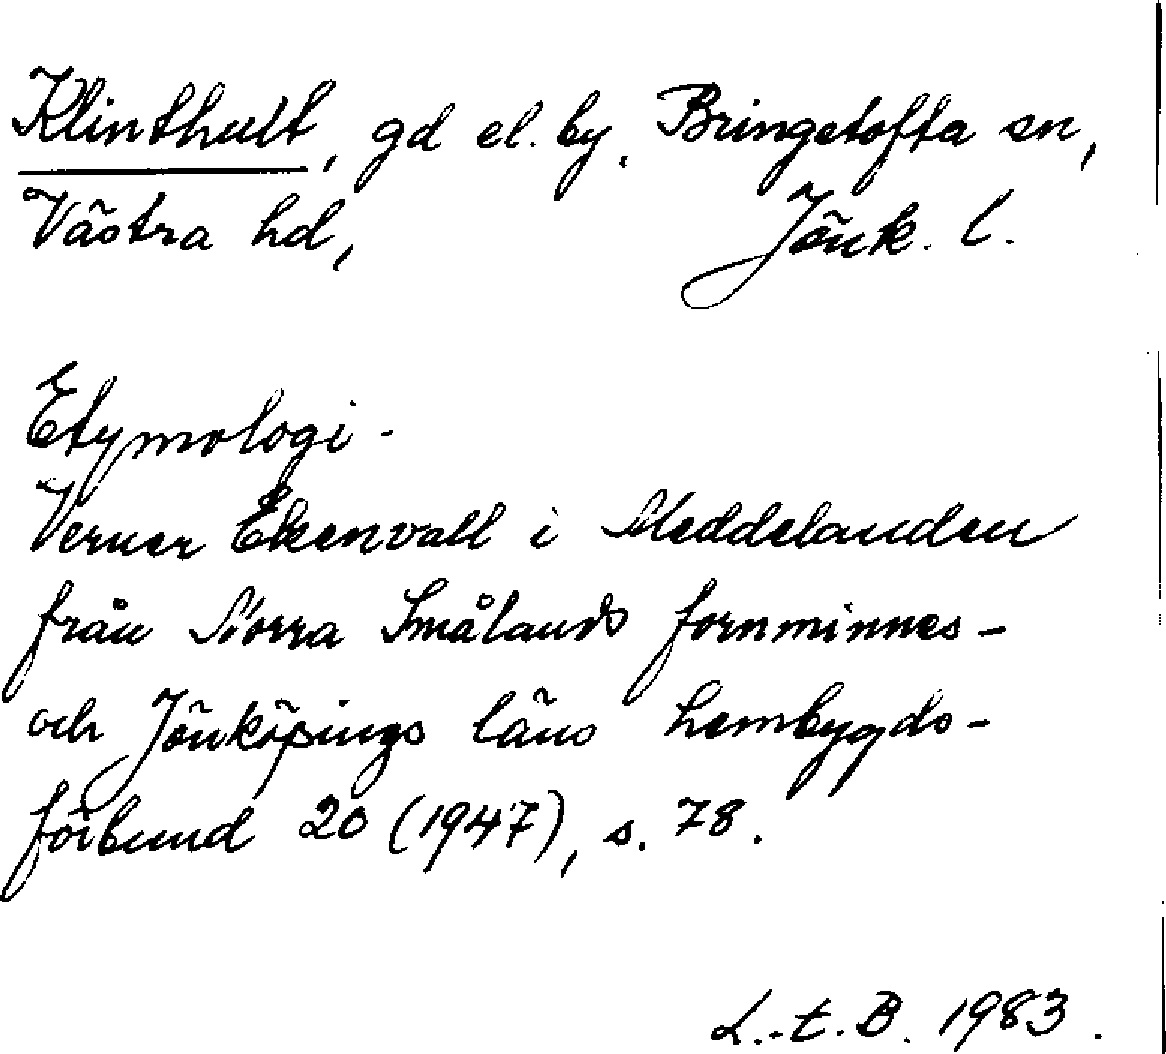 Klinthult, gd el. by, Bringetofta sn,
Västra hd, Jönk. l.
Etymologi.
Verner Ekenvall i Meddelanden
från Norra Smålands fornminnes-
och Jönköpings läns hembygds-
förbund 20 (1947), s. 78.
L.-E. B. 1983.